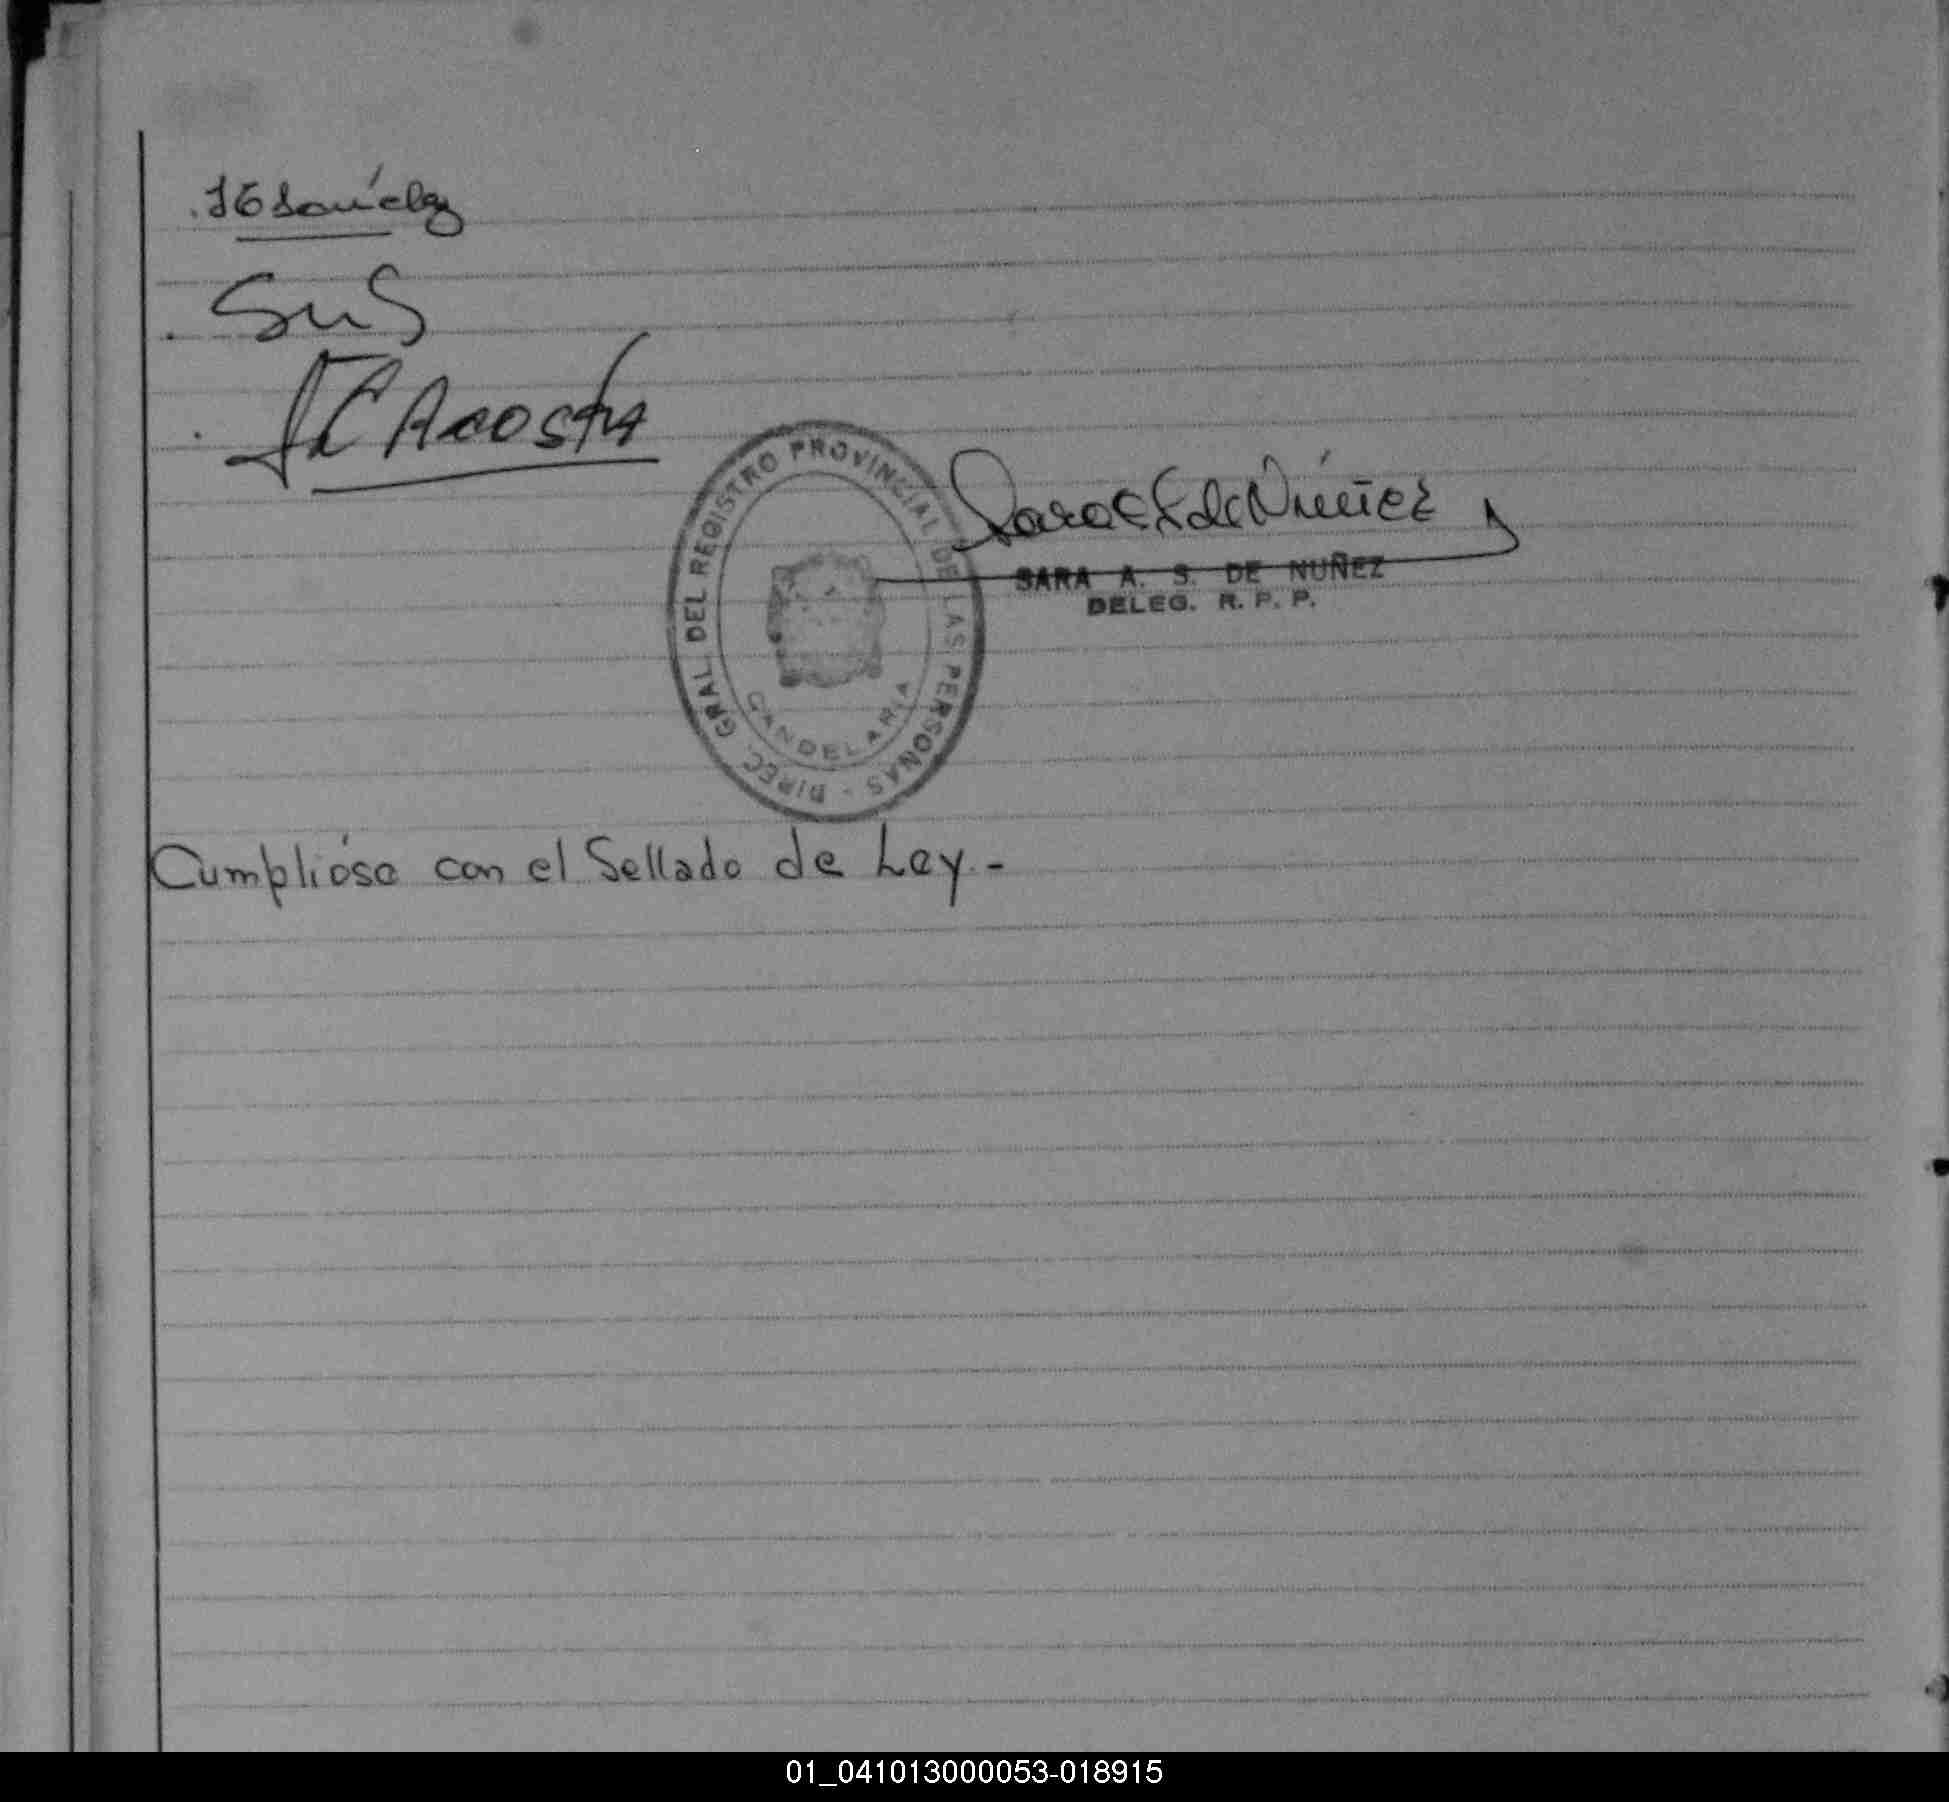 J C Acosta
DIREC. GRAL. DEL REGISTRO PROVINCIAL DE LAS PERSONAS -
CANDELARIA
Sara A S de Núñez
SARA A. S. DE NUÑEZ
DELEG. R. P. P.
Cumplióse con el Sellado de Ley.-
01_041013000053-018915